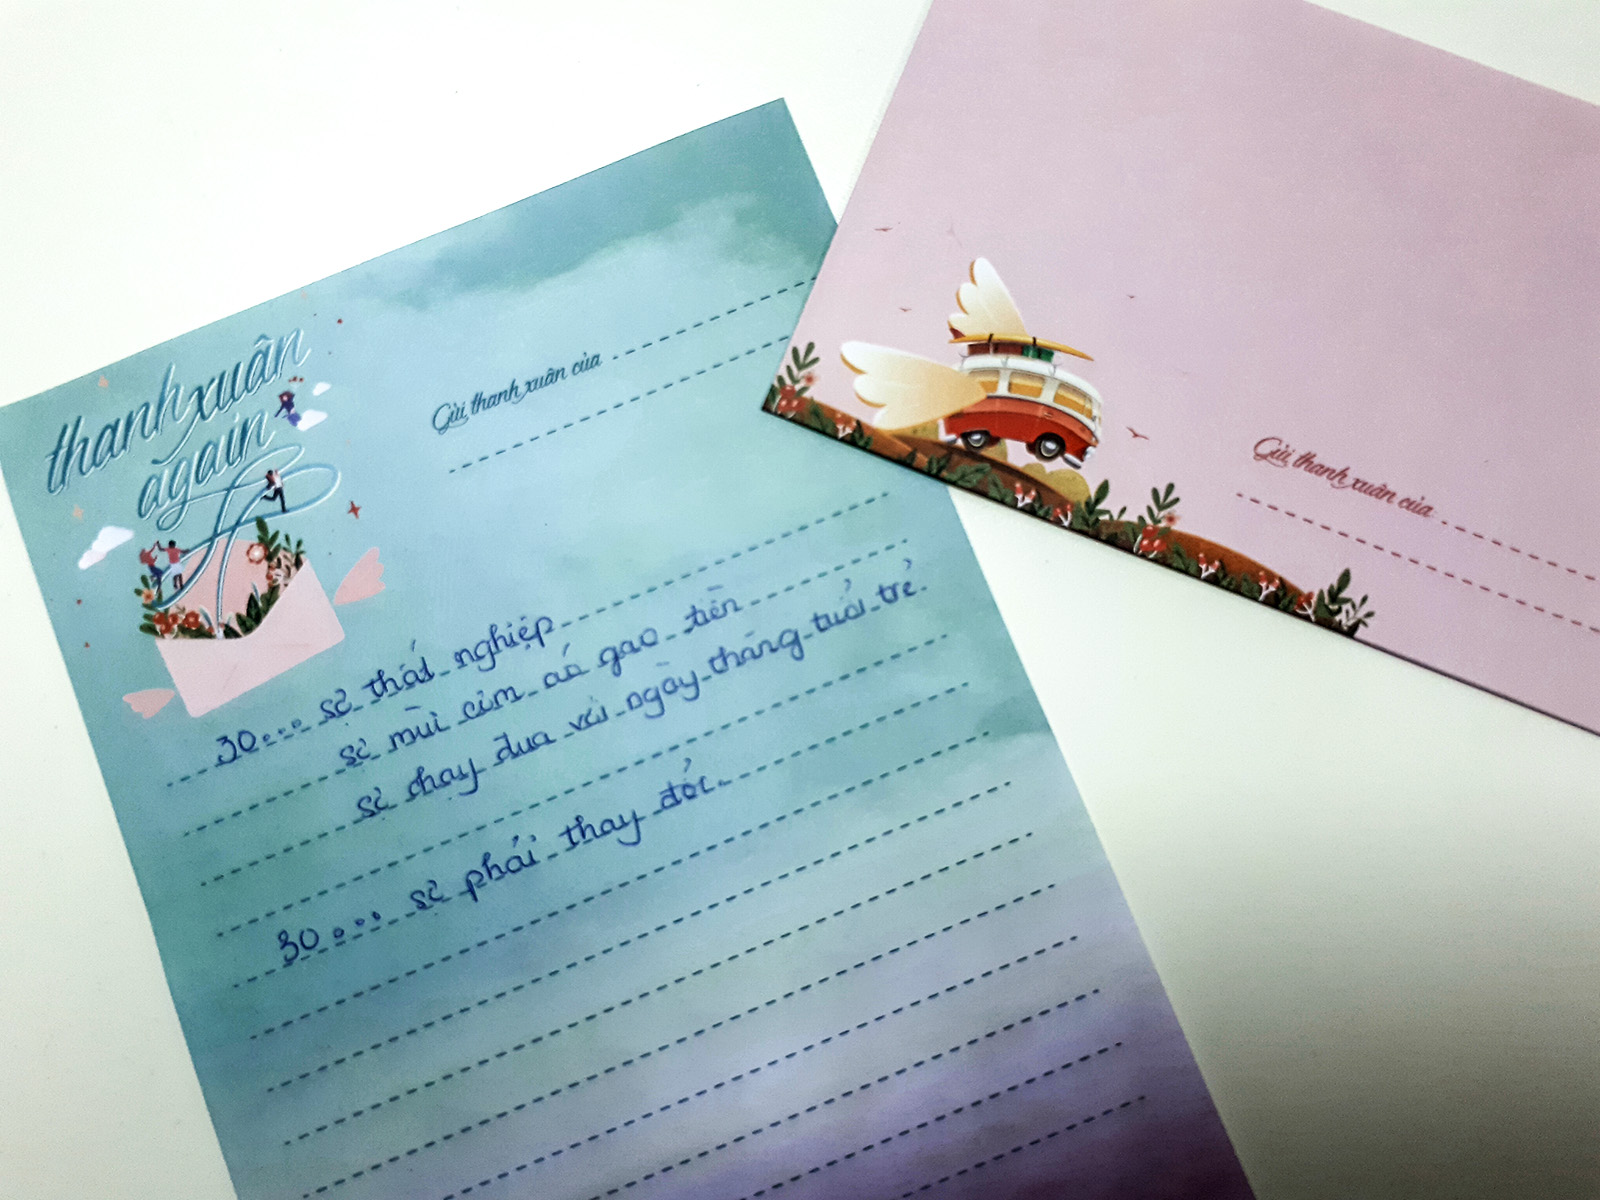 thanh xuân
again
Gửi thanh xuân của
30.... sẽ thất nghiệp
sẽ mùi cơm áo gạo tiền
sẽ chạy đua với ngày tháng tuổi trẻ.
30.... sẽ phải thay đổi.
Gửi thanh xuân của